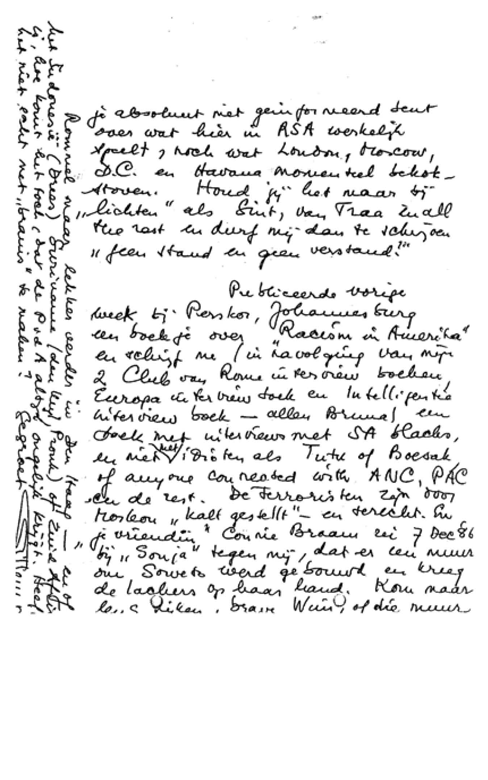 je absoluut niet geinformeerd bent
over wat hier in RSA werkelijk
speelt, noch wat London, Moscow,
D.C. en Havana momenteel bekok-
stoven. Houd jij het maar bij
"lichten" als Sint, van Traa en all
the rest en durf mij dan te schrijven
"geen stand en geen verstand!"
Publiceerde vorige
week bij Perskor, Johannesburg
een boekje over "Racism in Amerika"
en schrijf nu (in navolging van mijn
2 Club van Rome interview boeken,
Europa interview boek en Intelligentie
interview boek — allen Bruna) een
boek met interviews met SA blacks,
en niet met idioten als Tutu of Boesak
of anyone connected with ANC, PAC
en de rest. De terroristen zijn door
Moskou "kalt gestellt" – en terecht. En
je vriendin Connie Braam zei 7 Dec 86
bij "Sonja" tegen mij, dat er een muur
om Soweto werd gebouwd en kreeg
de lachers op haar hand. Kom maar
kijken, brave Wim, of die muur
Rommel maar lekker verder in Den Haag — en of
het Indonesië (Drees) Suriname (den Uyl, Pronk) of Zuid Afrika
hoe komt het toch, dat de PvdA altijd ongelijk krijgt. Heeft
het niet echt met "brains" te maken?
Gegroet